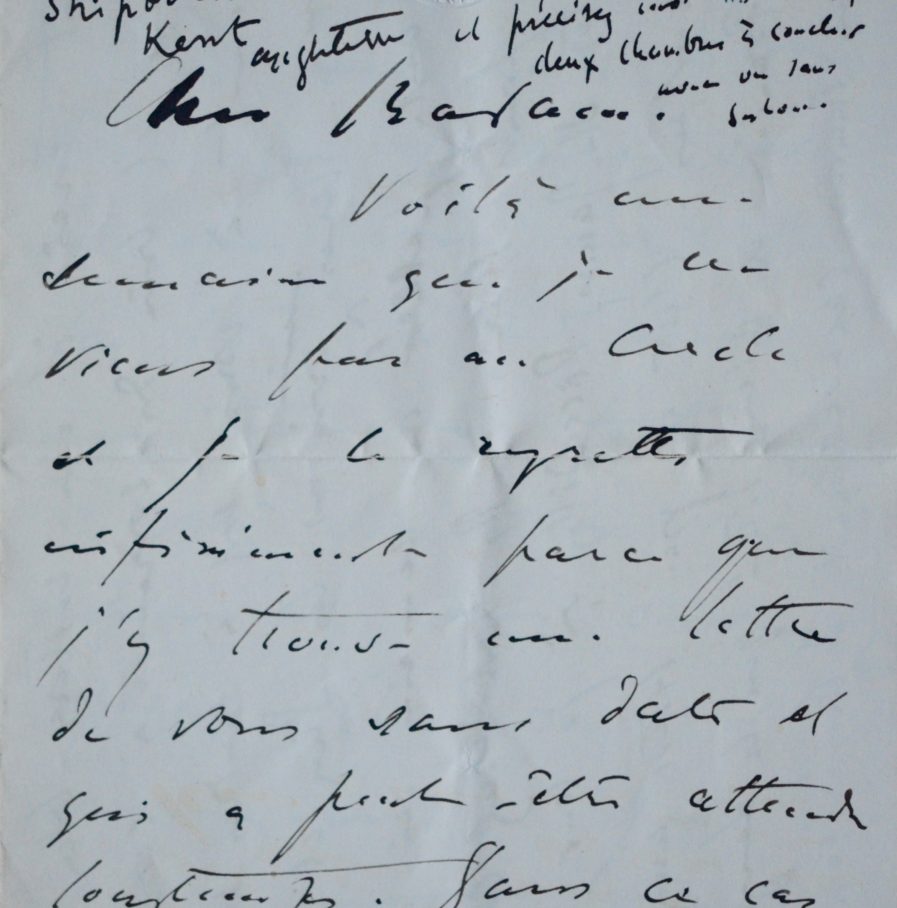 Kent Angleterre et précisez
deux chambres à coucher
avec ou sans
Chère Madame.
Voilà une
semaine que je ne
viens pas au Cercle
et je le regrette
infiniment parce que
j'y trouve une lettre
de vous sans date et
qui a peut-être attendu
longtemps. Dans ce cas